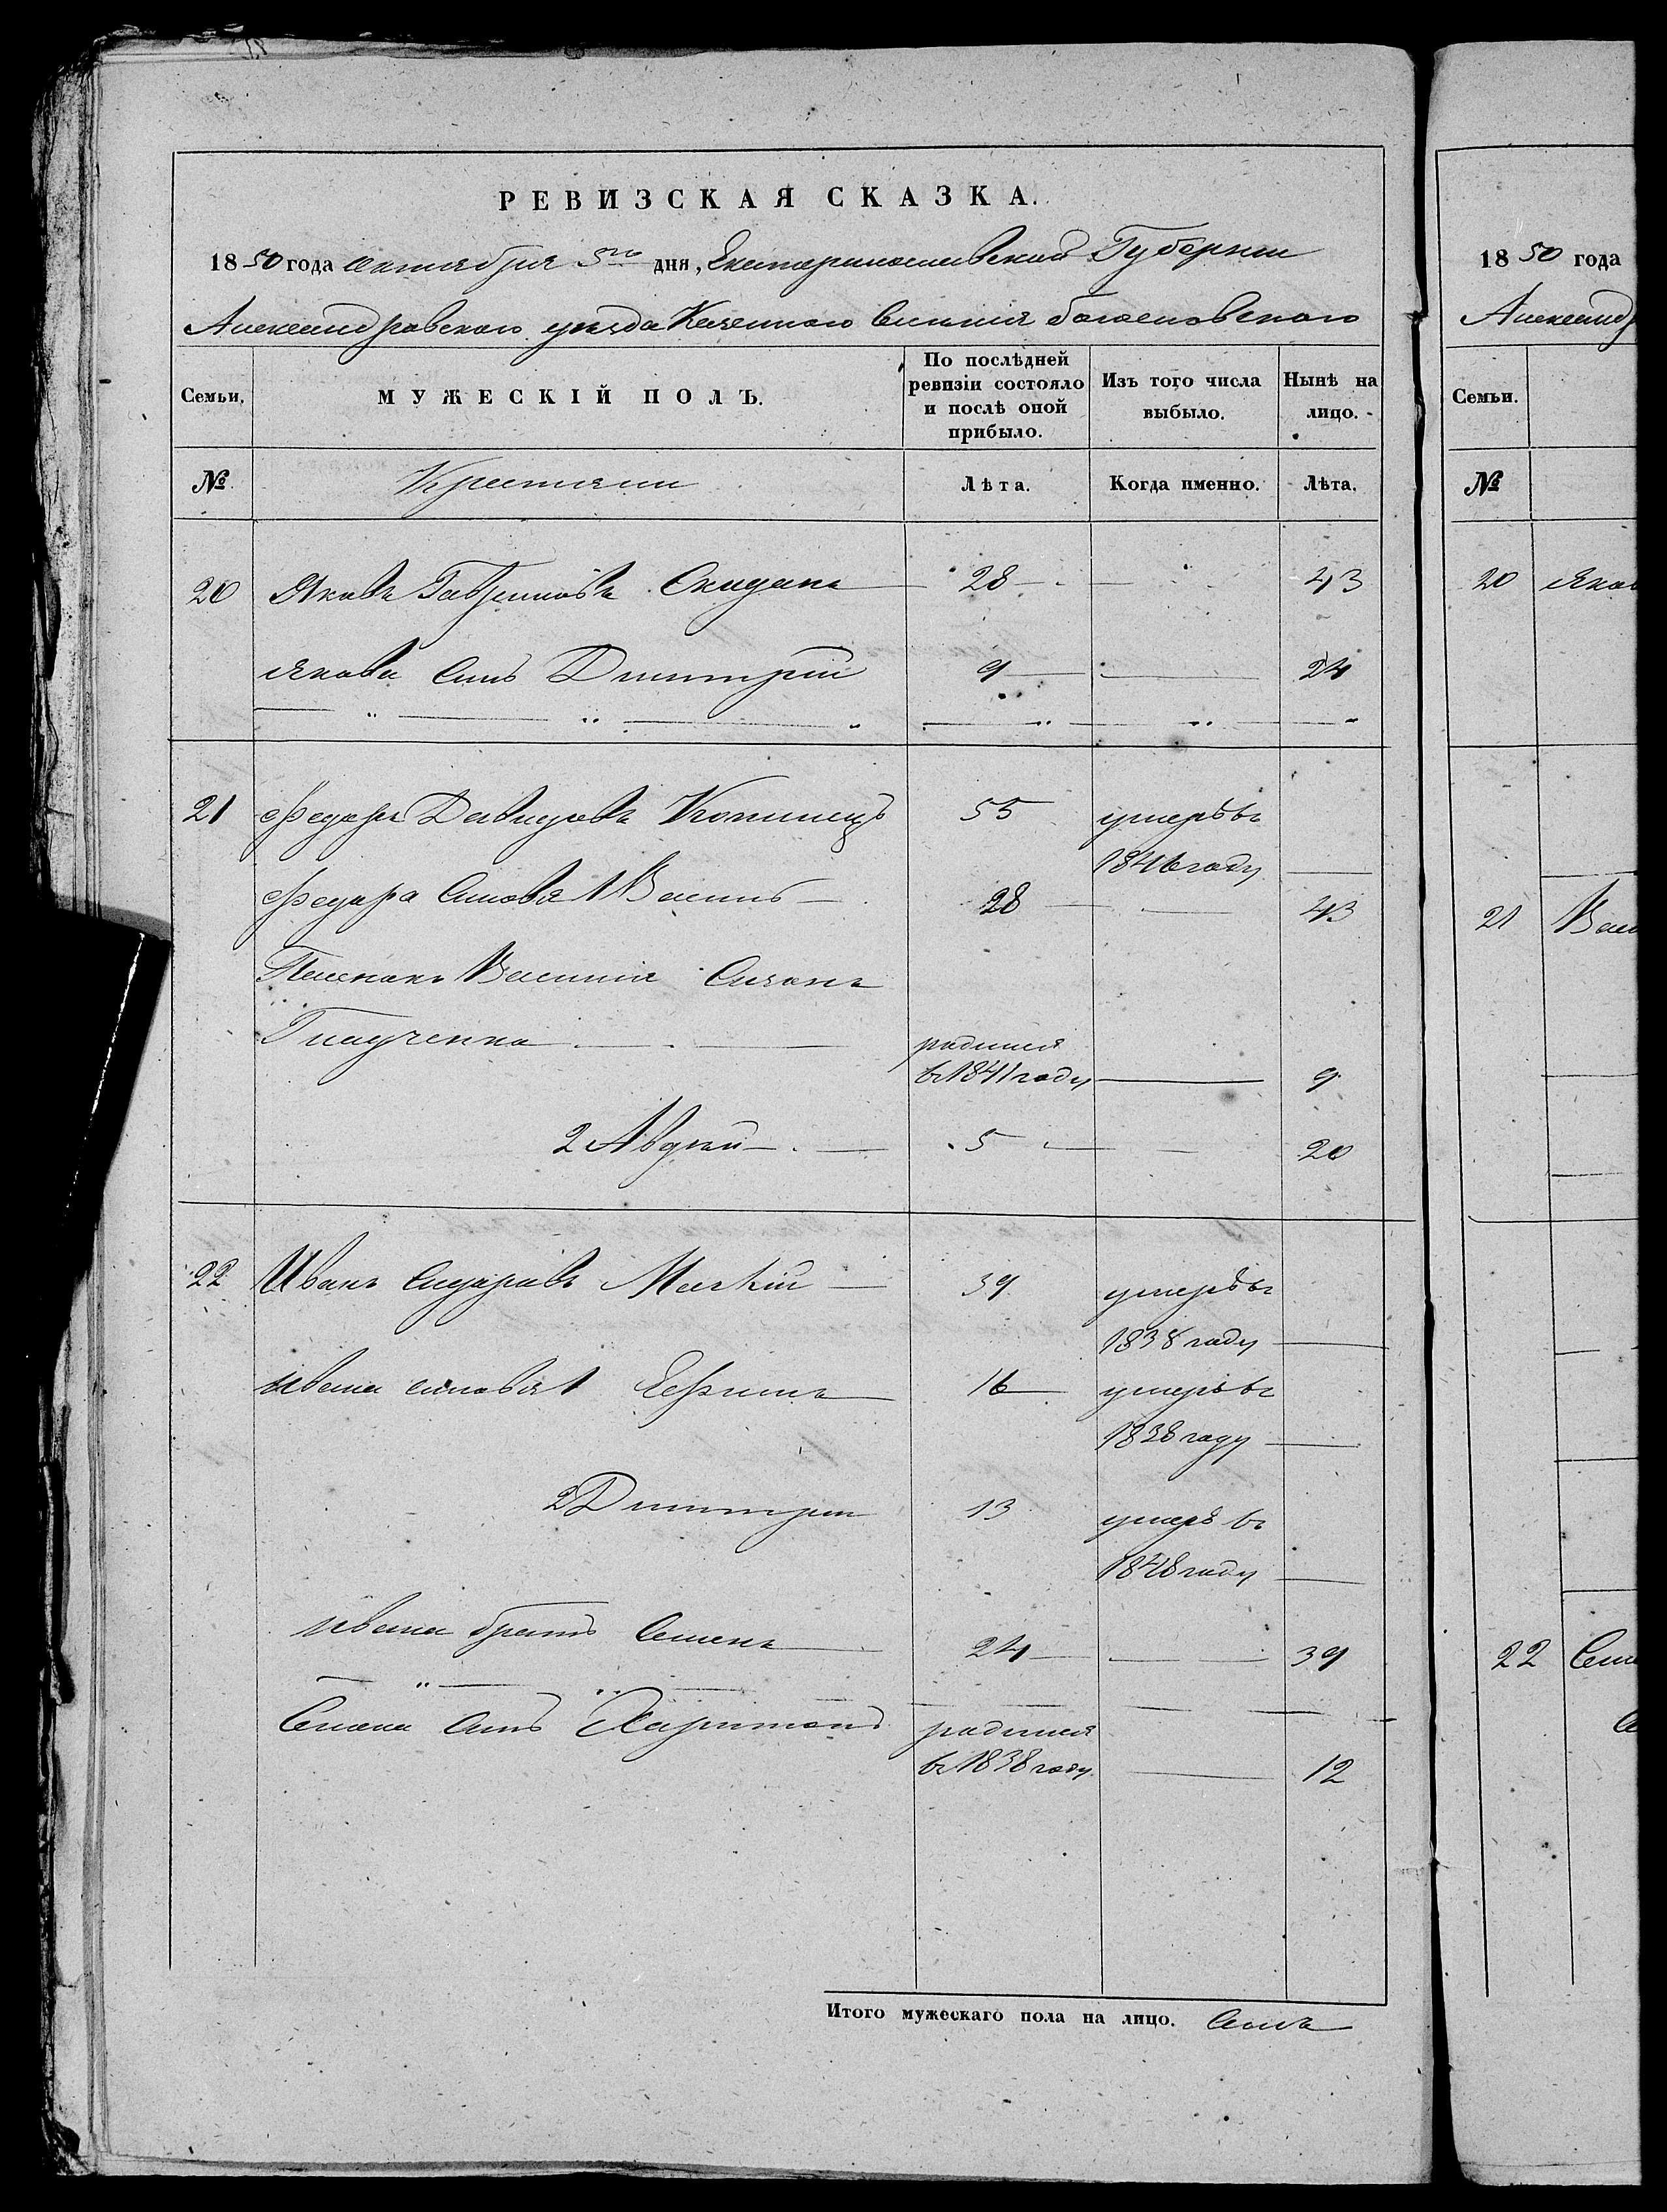 РЕВИЗСКАЯ СКАЗКА.
1850 года октября 5го дня, Екатеринославской Губернии
Александровского уезда Казенного селения
Семьи. МУЖЕСКІЙ ПОЛЪ. По послѣдней ревизіи состояло и послѣ оной прибыло. Изъ того числа выбыло. Нынѣ на лицо.
№ Крестяни Лѣта. Когда именно. Лѣта.
20 Яковъ Гавриловъ Скиданъ 28 43
Якова Сынъ Дмитрій 9 24
21 Федоръ Давидовъ 55 умеръ въ
1846 году
Федора Сыновя 1 Василь 28 43
Василия
родился
въ 1841 году 9
2 Авдей 5 20
22 Иванъ Сидоровъ 39 умеръ въ
1838 году
Ивана сыновя 1 Ефимъ 16 умеръ въ
1838 году
2 Дмитрии 13 умеръ въ
1848 году
Ивана братъ Семенъ 24 39
Семена Сынъ Харитонъ родился
въ 1838 году 12
Итого мужескаго пола на лицо. Семь
1850 года
Александр
Семьи.
№
20 Яков
21 Васи
22 Семе